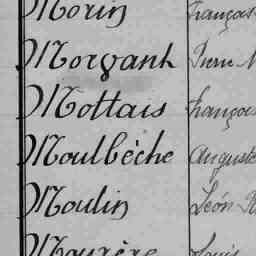 Morin François
Morvant Pierre
Mottais François
Moulbêche Auguste
Moulin Léon
Mourère Louis